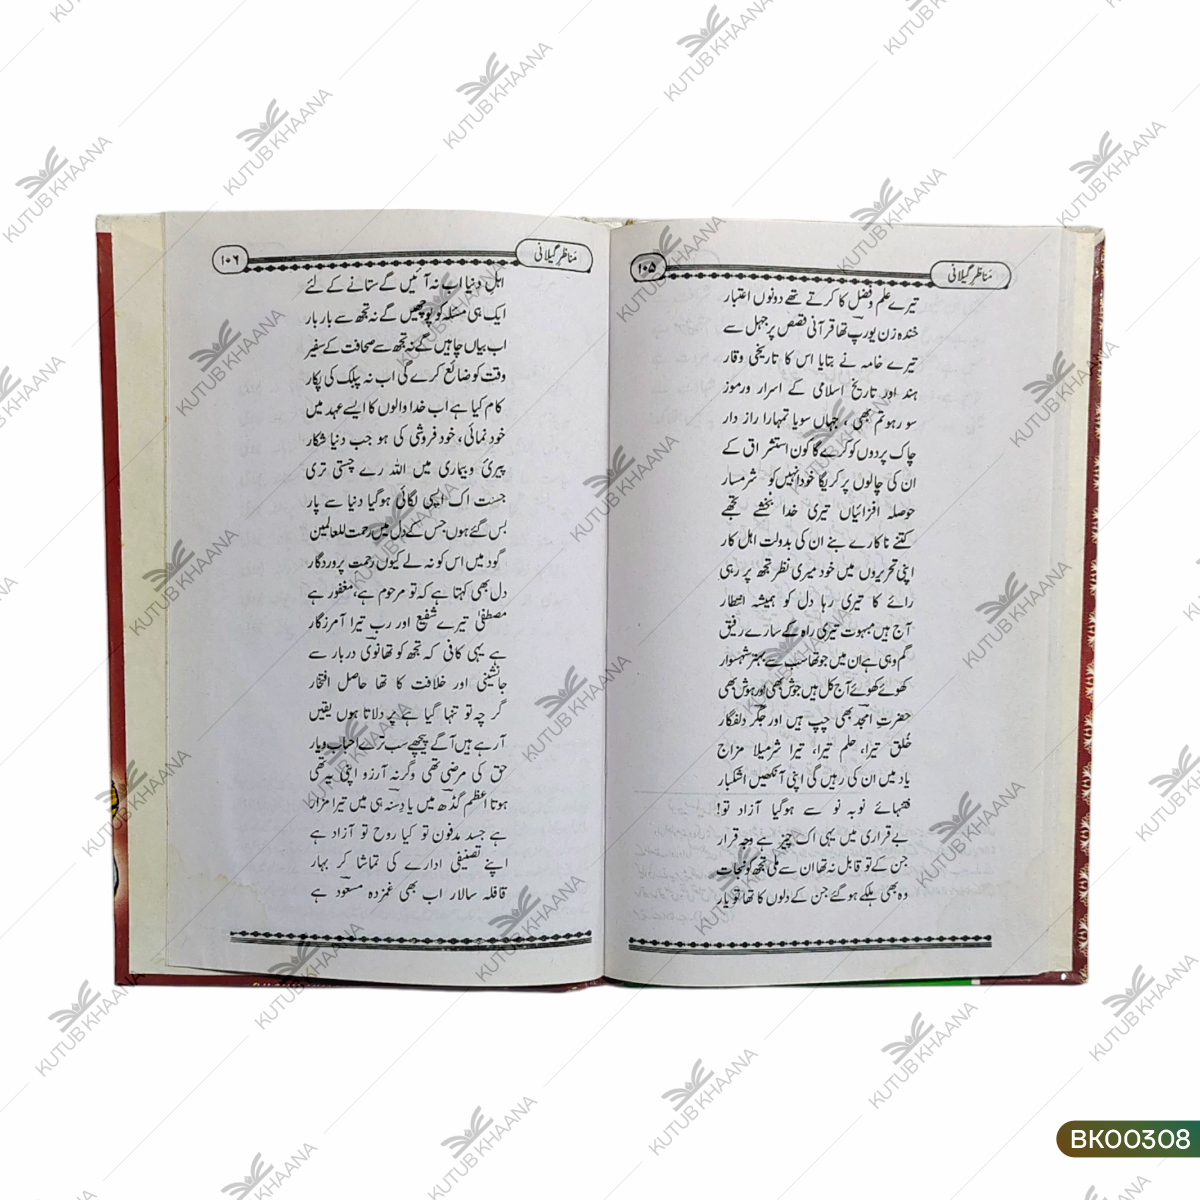 مناظر گیلانی
۱۰۵
تیرے علم و فضل کا کرتے تھے دونوں اعتبار
خندہ زن یورپ تھا قرآنی قصص پر جہل سے
تیرے خامہ نے بتایا اس کا تاریخی وقار
ہند اور تاریخ اسلامی کے اسرار ورموز
سو رہو تم بھی ، جہاں سویا تمہارا راز دار
چاک پردوں کو کرے گا کون استشراق کے
ان کی چالوں پر کریگا خود انہیں کو شرمسار
حوصلہ افزائیاں تیری خدا بخشے تجھے
کتنے ناکارے بنے ان کی بدولت اہل کار
اپنی تحریروں میں خود میری نظر تجھ پر رہی
رائے کا تیری رہا دل کو ہمیشہ انتظار
آج ہیں مبہوت تیری راہ کے سارے رفیق
گم وہی ہے ان میں جو تھا سب سے بہتر شہسوار
کھوئے کھوئے آج کل ہیں جوش بھی اور ہوش بھی
حضرت امجد بھی چپ ہیں اور جگر دلفگار
خُلق تیرا، حلم تیرا، تیرا شرمیلا مزاج
یاد میں ان کی رہیں گی اپنی آنکھیں اشکبار
فتنہائے نوبہ نو سے ہوگیا آزاد تو!
بے قراری میں یہی اک چیز ہے وجہ قرار
جن کے تو قابل نہ تھا ان سے ملی تجھ کو نجات
وہ بھی ہلکے ہو گئے جن کے دلوں کا تھا تو بار
مناظر گیلانی
۱۰۶
اہل دنیا اب نہ آئیں گے ستانے کے لئے
ایک ہی مسئلہ کو پوچھیں گے نہ تجھ سے بار بار
اب بیاں چاہیں گے نہ تجھ سے صحافت کے سفیر
وقت کو ضائع کرے گی اب نہ پبلک کی پکار
کام کیا ہے اب خدا والوں کا ایسے عہد میں
خود نمائی، خود فروشی کی ہو جب دنیا شکار
پیری و بیماری میں اللہ رے چستی تری
جست اک ایسی لگائی ہوگیا دنیا سے پار
بس گئے ہوں جس کے دل میں رحمت للعالمین
گود میں اس کو نہ لے کیوں رحمت پروردگار
دل بھی کہتا ہے کہ تو مرحوم ہے، مغفور ہے
مصطفیٰ تیرے شفیع اور رب تیرا آمرزگار
ہے یہی کافی کہ تجھ کو تھانوی دربار سے
جانشینی اور خلافت کا تھا حاصل افتخار
گر چہ تو تنہا گیا ہے پر دلاتا ہوں یقیں
آرہے ہیں آگے پیچھے سب ترے احباب و یار
حق کی مرضی تھی وگرنہ آرزو اپنی یہ تھی
ہوتا اعظم گڈھ میں یا دسنہ ہی میں تیرا مزار
ہے جسد مدفون تو کیا روح تو آزاد ہے
اپنے تصنیفی ادارے کی تماشا کر بہار
قافلہ سالار اب بھی غمزدہ مسعود ہے
BK00308
KUTUB KHAANA